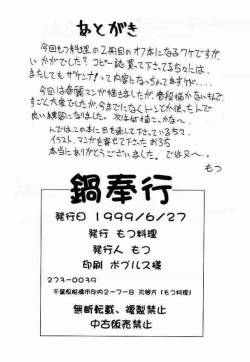 あとがき
今回もつ料理の2冊目のオフ本になるワケですが、
いかがでしたか?コピー誌買って下さってる方々には、
またしてもザケンナ!って内容になっちゃてますが…。
今回は春麗マンガ描きましたが、普段描かないもんで、
すごく大変でしたが、今までになくトーンとか使ったんで
良い練習になりました。次は何描こかな〜。
んでは、この本に目を通して下さっている方々、
イラスト、マンガを寄せて下さったお3方
本当にありがとうございました。では又〜。
もつ
鍋奉行
発行日 1999/6/27
発行 もつ料理
発行人 もつ
印刷 ポプルス様
273-0039
千葉県船橋市印内2-7-8 (もつ料理)
無断転載、複製禁止
中古販売禁止